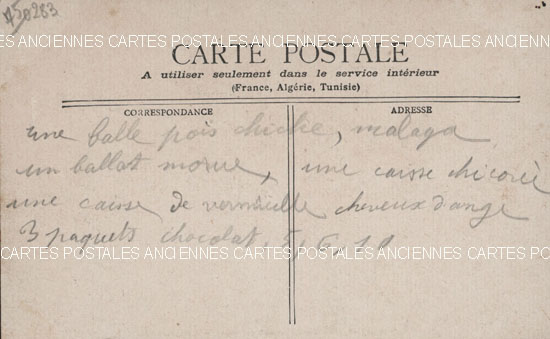 450283
CARTES POSTALES ANCIENNES CARTES POSTALES ANCIENNES CARTES POSTALES
CARTE POSTALE
A utiliser seulement dans le service intérieur
(France, Algérie, Tunisie)
CORRESPONDANCE
ADRESSE
une balle pois chiche, malaga
un ballot morue, une caisse chicorée
une caisse de vermicelle cheveux d'ange
3 paquets chocolat
CARTES POSTALES ANCIENNES CARTES POSTALES ANCIENNES CARTES POSTALES